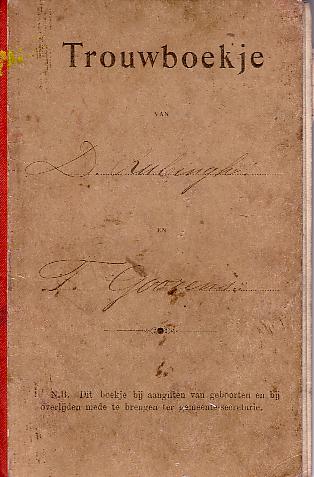 Trouwboekje
VAN
D.
EN
F. Goossens
N.B. Dit boekje bij aangiften van geboorten en bij
overlijden mede te brengen ter gemeente-secretarie.